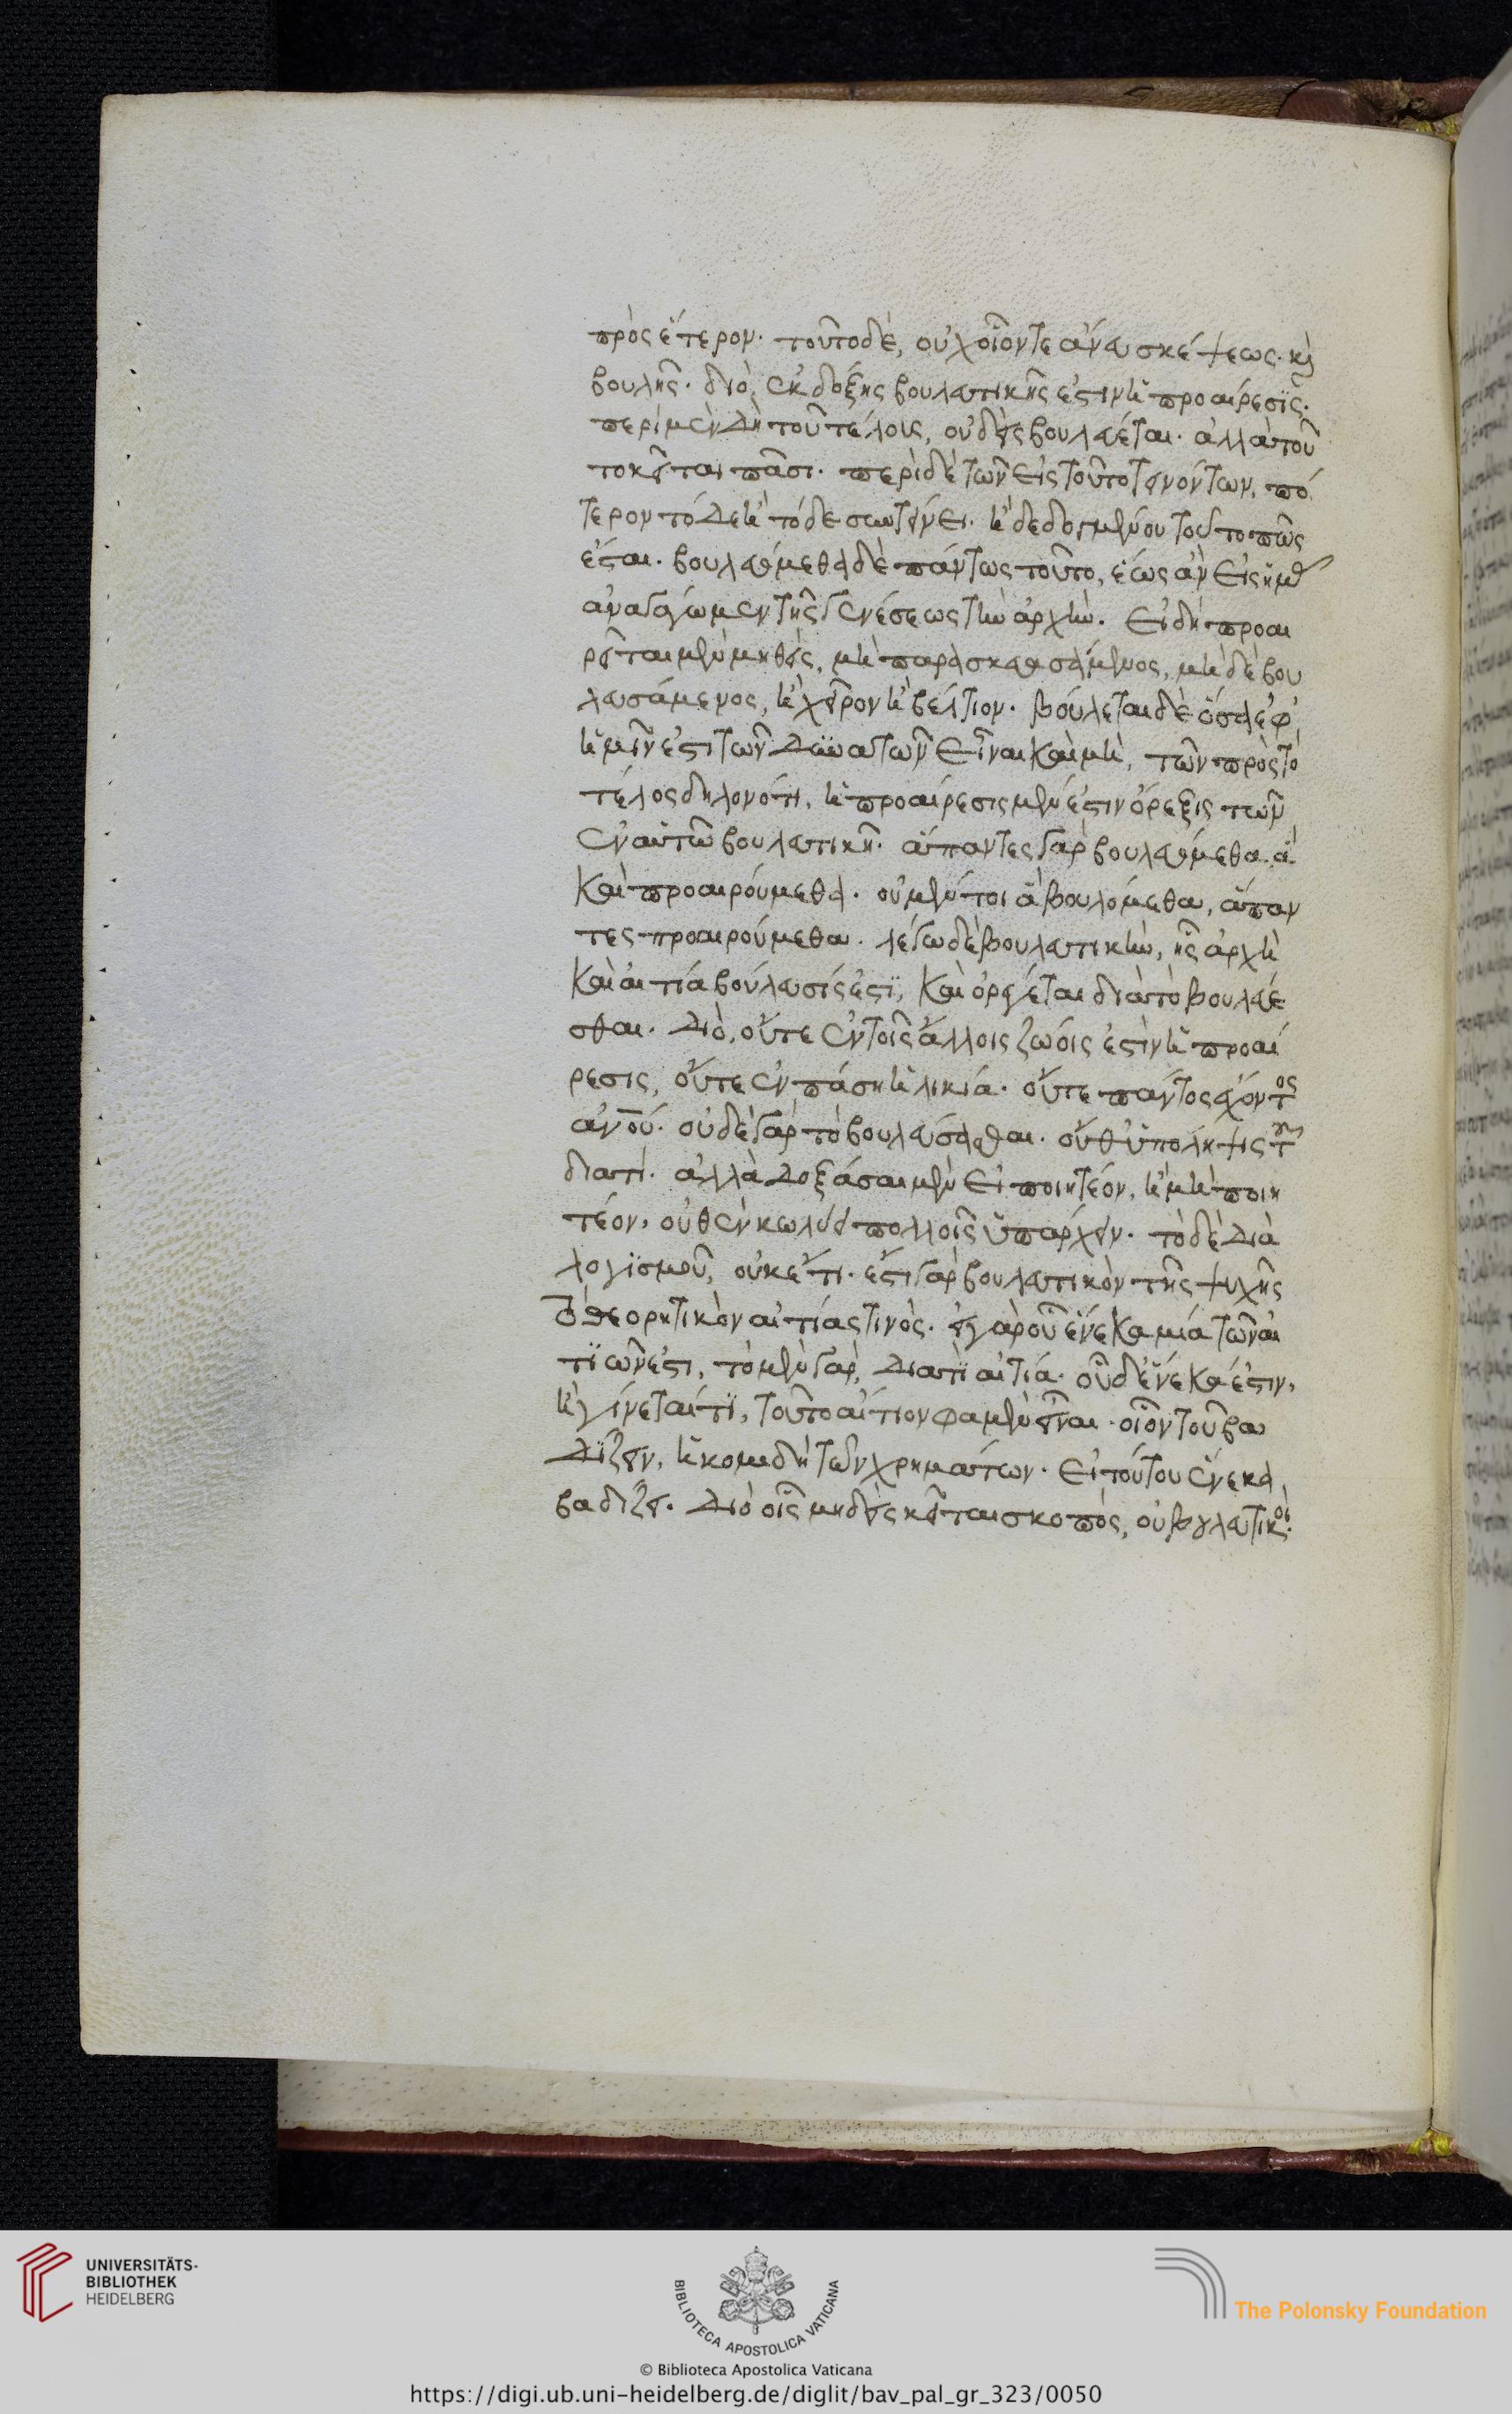 πρὸς ἕτερον. τοῦτο δὲ, οὐχ οἷόντε ἄνευ σκέψεως. κὶ
βουλῆς. διὸ, ἐκ δόξης βουλευτικῆς ἐστὶν ἡ προαίρεσϊς.
περὶ μὲν δὴ τοῦ τέλους, οὐδεὶς βουλεύεται. ἀλλὰ τοῦ
το κεῖται πᾶσι. περὶ δὲ τῶν εἰς τοῦτο τεινόντων, πό
τερον τόδε ἢ τόδε συντείνει. ἢ δεδογμένου τοῦτο πῶς
ἔσται. βουλευόμεθα δὲ πάντως τοῦτο, ἕως ἂν εἰς ἡμᾶς
ἀναγάγωμεν τῆς γενέσεως τὴν ἀρχήν. εἰ δὴ προαι
ρεῖται μὲν μηθεὶς, μὴ παρασκευασάμενος, μὴ δὲ βου
λευσάμενος, ἢ χεῖρον ἢ βέλτιον. βούλεται δὲ ὅσα ἐφ'
ἡμῖν ἐστὶ τῶν δυνατῶν εἶναι καὶ μὴ, τῶν πρὸς τὸ
τέλος δηλονότι, ἡ προαίρεσις μὲν ἐστιν ὄρεξις τῶν
ἐν αὑτῶ βουλευτικὴ. ἅπαντες γὰρ βουλευόμεθα ἃ
καὶ προαιρούμεθα. οὐ μέντοι ἃ βουλόμεθα, ἅπαν
τες προαιρούμεθα. λέγω δὲ βουλευτικὴν, ἧς ἀρχὴ
καὶ αἰτία βούλευσίς ἐστϊ, καὶ ὀρέγεται διὰ τὸ βουλεύε
σθαι. διὸ, οὔτε ἐν τοῖς ἄλλοις ζώοις ἐστὶν ἡ προαί
ρεσις, οὔτε ἐν πάση ἡλικία. οὔτε παντὸς ἔχοντος
ἀνου. οὐδὲ γὰρ τὸ βουλεύσασθαι. οὔθ' ὑπόληψις τοῦ
διατί. ἀλλὰ δοξάσαι μὲν εἰ ποιητέον, ἢ μὴ ποιη
τέον, οὐθὲν κωλύει πολλοῖς ὑπάρχειν. τὸ δὲ διὰ
λογϊσμοῦ, οὐκ ἔτι. ἔστι γὰρ βουλευτικὸν τῆς ψυχῆς
τὸ θεορητικὸν αἰτίας τινὸς. ἡ γὰρ οὗ ἕνεκα μία τῶν αἰ
τϊῶν ἐστι, τὸ μὲν γὰρ, διατὶ αἰτία. οὗ δ' ἕνεκά ἐστιν,
ἢ γίνεταί τϊ, τοῦτο αἴτιον φαμὲν εἶναι. οἷον τοῦ βα
δίζειν, ἡ κομιδὴ τῶν χρημάτων. εἰ τούτου ἕνεκα
βαδίζει. διὸ οἷς μηδεὶς κεῖται σκοπὸς, οὐ βουλευτικοὶ.
© Biblioteca Apostolica Vaticana
UNIVERSITÄTS-
BIBLIOTHEK
HEIDELBERG
BIBLIOTECA APOSTOLICA VATICANA
The Polonsky Foundation
https://digi.ub.uni-heidelberg.de/diglit/bav_pal_gr_323/0050